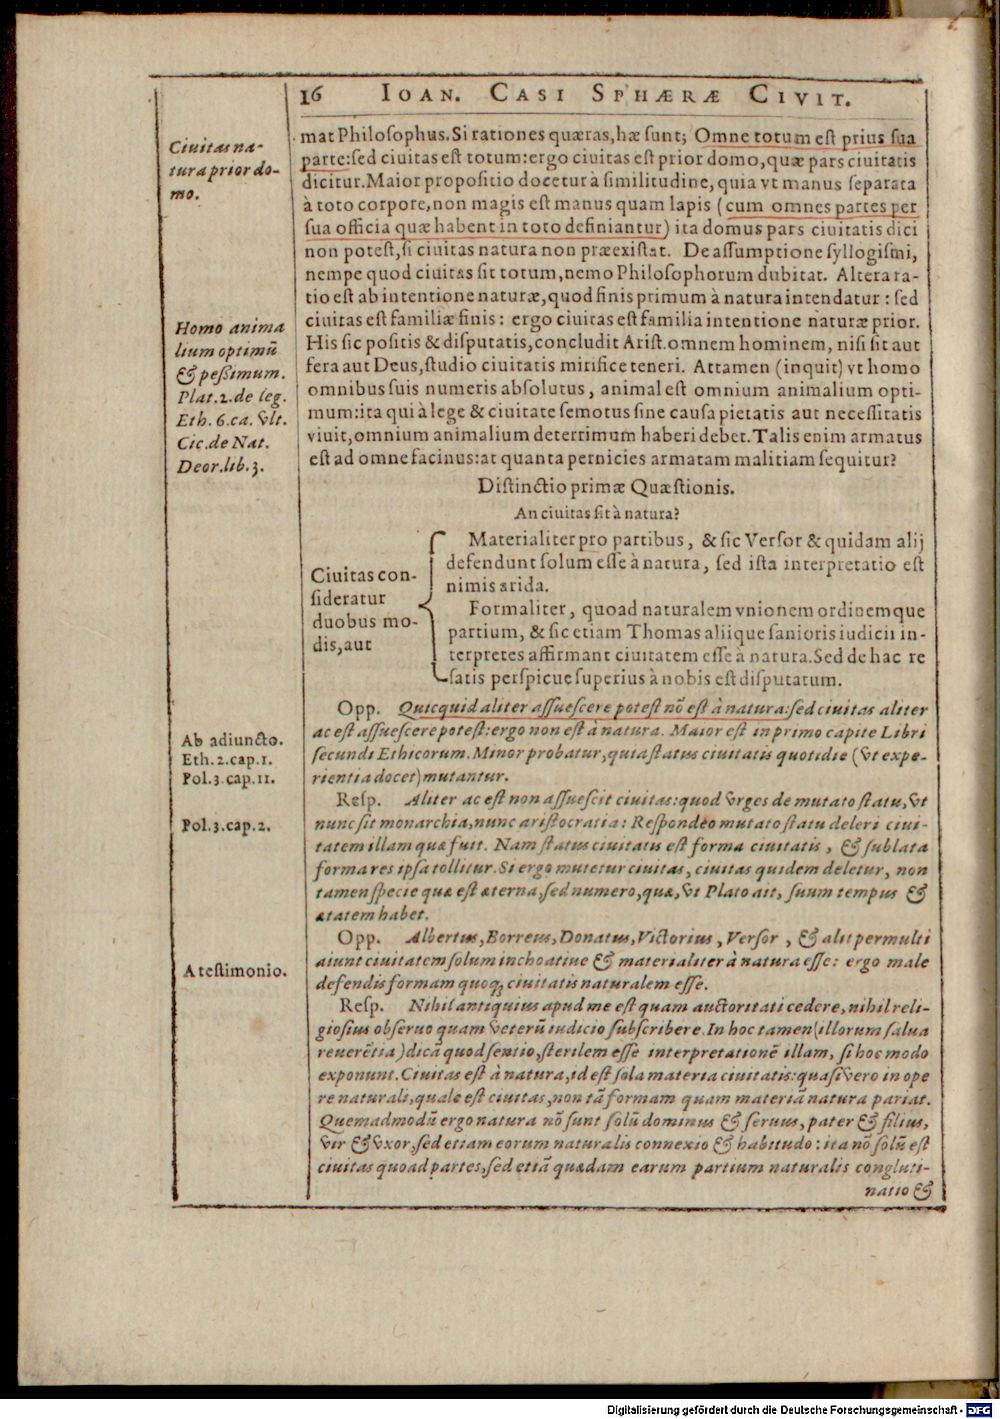 16 IOAN. CASI SPHÆRÆ CIVIT.
Ciuitas na-
tura prior do-
mo.
mat Philosophus. Si rationes quæras, hæ sunt; Omne totum est prius sua
parte: sed ciuitas est totum: ergo ciuitas est prior domo, quæ pars ciuitatis
dicitur. Maior propositio docetur à similitudine, quia vt manus separata
à toto corpore, non magis est manus quam lapis (cum omnes partes per
sua officia quæ habent in toto definiantur) ita domus pars ciuitatis dici
non potest, si ciuitas natura non præexistat. De assumptione syllogismi,
nempe quod ciuitas sit totum, nemo Philosophorum dubitat. Altera ra-
tio est ab intentione naturæ, quod finis primum à natura intendatur: sed
ciuitas est familiæ finis: ergo ciuitas est familia intentione naturæ prior.
His sic positis & disputatis, concludit Arist. omnem hominem, nisi sit aut
fera aut Deus, studio ciuitatis mirifice teneri. Attamen (inquit) vt homo
omnibus suis numeris absolutus, animal est omnium animalium opti-
mum: ita qui à lege & ciuitate semotus sine causa pietatis aut necessitatis
viuit, omnium animalium deterrimum haberi debet. Talis enim armatus
est ad omne facinus: at quanta pernicies armatam malitiam sequitur?
Homo anima
lium optimū
& pessimum.
Plat. 2. de leg.
Eth. 6. ca. vlt.
Cic. de Nat.
Deor. lib. 3.
Distinctio primæ Quæstionis.
An ciuitas sit à natura?
Ciuitas con-
sideratur
duobus mo-
dis, aut
Materialiter pro partibus, & sic Versor & quidam alij
defendunt solum esse à natura, sed ista interpretatio est
nimis arida.
Formaliter, quoad naturalem vnionem ordinemque
partium, & sic etiam Thomas aliique sanioris iudicii in-
terpretes affirmant ciuitatem esse à natura. Sed de hac re
satis perspicue superius à nobis est disputatum.
Opp. Quicquid aliter assuescere potest nō est à natura: sed ciuitas aliter
ac est assuescere potest: ergo non est à natura. Maior est in primo capite Libri
secundi Ethicorum. Minor probatur, quia status ciuitatis quotidie (vt expe-
rientia docet) mutantur.
Ab adiuncto.
Eth. 2. cap. 1.
Pol. 3. cap. 11.
Resp. Aliter ac est non assuescit ciuitas: quod vrges de mutato statu, vt
nunc sit monarchia, nunc aristocratia: Respondeo mutato statu deleri ciui-
tatem illam quæ fuit. Nam status ciuitatis est forma ciuitatis, & sublata
forma res ipsa tollitur. Si ergo mutetur ciuitas, ciuitas quidem deletur, non
tamen specie quæ est æterna, sed numero, quæ, vt Plato ait, suum tempus &
ætatem habet.
Pol. 3. cap. 2.
Opp. Albertus, Borreus, Donatus, Victorius, Versor, & alii permulti
aiunt ciuitatem solum inchoatiue & materialiter à natura esse: ergo male
defendis formam quoq; ciuitatis naturalem esse.
A testimonio.
Resp. Nihil antiquius apud me est quam auctoritati cedere, nihil reli-
giosius obseruo quam veterū iudicio subscribere. In hoc tamen (illorum salua
reuerētia) dicā quod sentio, sterilem esse interpretationē illam, si hoc modo
exponunt. Ciuitas est à natura, id est sola materia ciuitatis: quasi vero in ope
re naturali, quale est ciuitas, non tā formam quam materiā natura pariat.
Quemadmodū ergo natura nō sunt solū dominus & seruus, pater & filius,
vir & vxor, sed etiam eorum naturalis connexio & habitudo: ita nō solū est
ciuitas quoad partes, sed etiā quædam earum partium naturalis congluti-
natio &
Digitalisierung gefördert durch die Deutsche Forschungsgemeinschaft - DFG